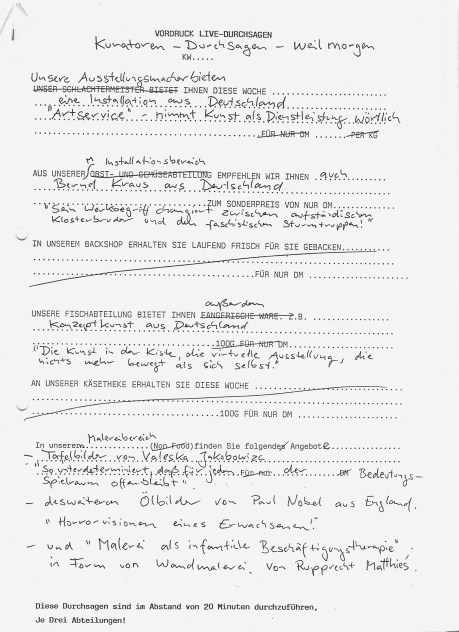 VORDRUCK LIVE-DURCHSAGEN
Kuratoren – Durchsagen – Weil morgen
KW.....
Unsere Ausstellungsmacher bieten
UNSER SCHLACHTERMEISTER BIETET IHNEN DIESE WOCHE
eine Installation aus Deutschland
"Artservice" – nimmt Kunst als Dienstleistung wörtlich
FÜR NUR DM PER KG
Installationsbereich
AUS UNSERER OBST- UND GEMÜSEABTEILUNG EMPFEHLEN WIR IHNEN auch
Bernd Kraus aus Deutschland
ZUM SONDERPREIS VON NUR DM
"Sein Werkbegriff changiert zwischen aufständischen
Klosterbruder und den faschistischen Sturmtruppen!"
IN UNSEREM BACKSHOP ERHALTEN SIE LAUFEND FRISCH FÜR SIE GEBACKEN
FÜR NUR DM
außerdem
UNSERE FISCHABTEILUNG BIETET IHNEN FANGFRISCHE WARE. Z.B.
Konzeptkunst aus Deutschland
100G FÜR NUR DM
"Die Kunst in der Kiste, die virtuelle Ausstellung, die
nichts mehr bewegt als sich selbst."
AN UNSERER KÄSETHEKE ERHALTEN SIE DIESE WOCHE
100G FÜR NUR DM
Malereibereich
In unserem (Non Food) finden Sie folgende Angebote
– Tafelbilder von Valeska Jakobowicz
"So unterdeterminiert, daß für jeden FÜR NUR der DM Bedeutungs-
Spielraum offenbleibt".
– desweiteren Ölbilder von Paul Nobel aus England.
"Horrorvisionen eines Erwachsenen!"
– und "Malerei als infantile Beschäftigungstherapie"
in Form von Wandmalerei. Von Rupprecht Matthies.
Diese Durchsagen sind im Abstand von 20 Minuten durchzuführen,
Je Drei Abteilungen!